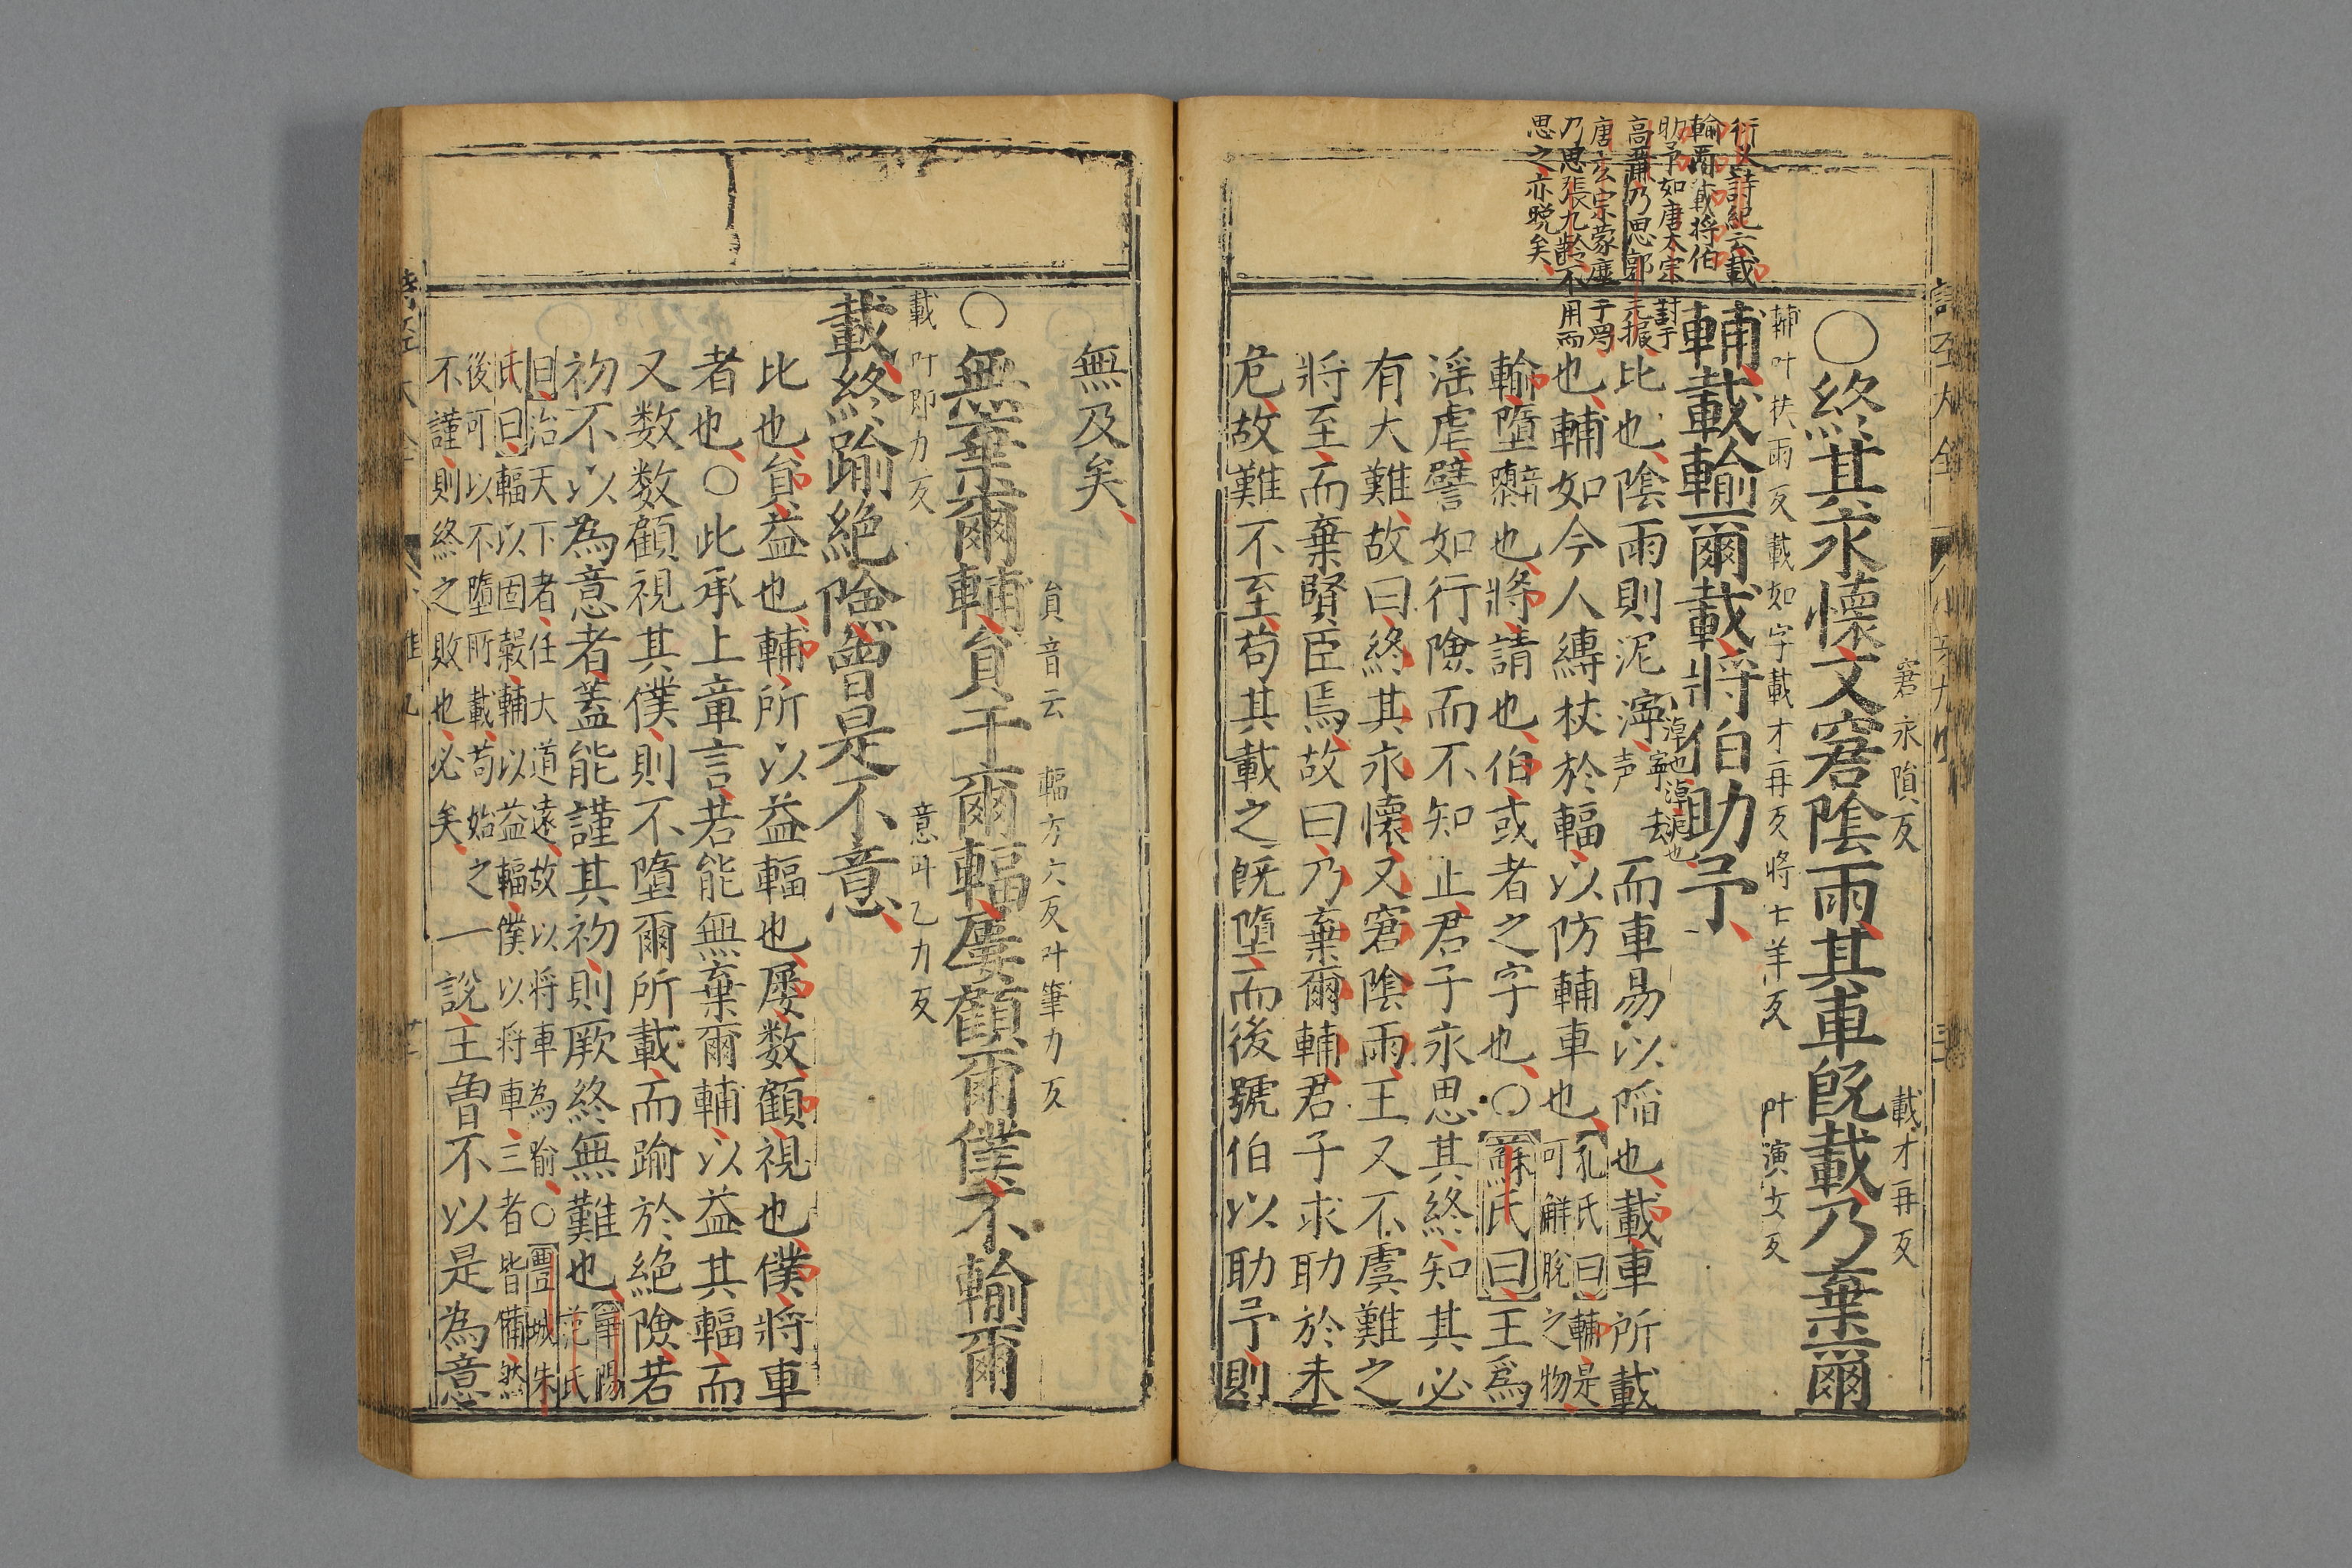 衍義詩紀云載
輸爾載將伯
助予如唐太宗討于
高麗乃思郭元振
唐玄宗蒙塵于蜀
乃思張九齡不用而
思之亦晚矣
窘永隕反 載才再反
○終其永懷又窘陰雨其車旣載乃棄爾
輔叶扶雨反載如字載才再反將七羊反 叶演女反
輔載輸爾載將伯助予
比也陰雨則泥濘而車易以陷也載車所載
也輔如今人縛杖於輻以防輔車也
孔氏曰輔是
可解脫之物
輸墮也將請也伯或者之字也○蘇氏曰王爲
淫虐譬如行險而不知止君子永思其終知其必
有大難故曰終其永懷又窘陰雨王又不虞難之
將至而棄賢臣焉故曰乃棄爾輔君子求助於未
危故難不至苟其載之旣墮而後號伯以助予則
無及矣
員音云 輻方六反叶筆力反
○無棄爾輔員于爾輻屢顧爾僕不輸爾
載叶節力反 意叶乙力反
載終踰絶險曾是不意
比也員益也輔所以益輻也屢数顧視也僕將車
者也○此承上章言若能無棄爾輔以益其輻而
又数数顧視其僕則不墮爾所載而踰於絶險若
初不以為意者蓋能謹其初則厥終無難也
華陽
范氏
曰治天下者任大道遠故以將車為喻○豐城朱
氏曰輻以固轂輔以益輻僕以將車三者皆備然
後可以不墮所載苟始之
不謹則終之敗也必矣
一說王曾不以是為意